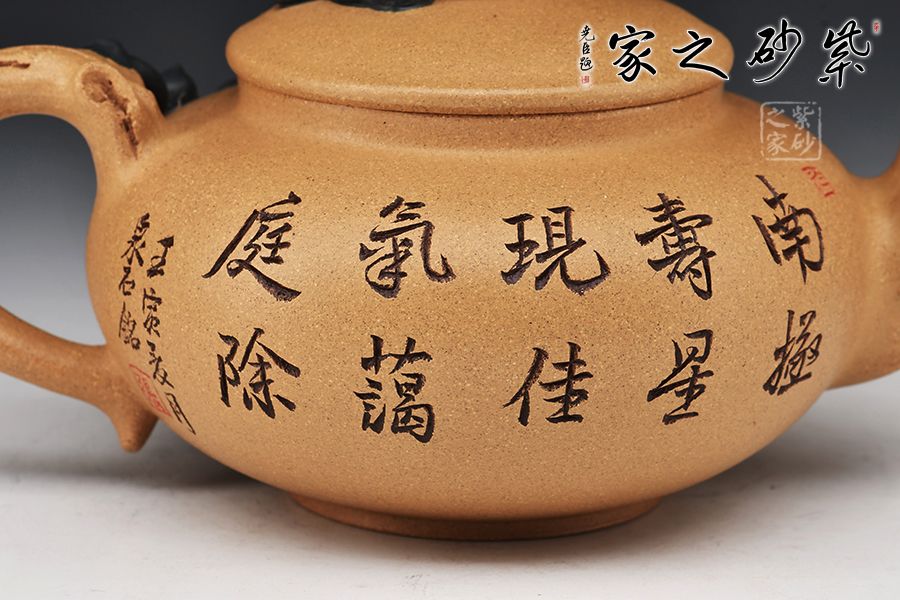 紫砂之家
堯臣題
紫砂
之家
南極
壽星
現佳
氣藹
庭除
壬寅夏月
泉石銘